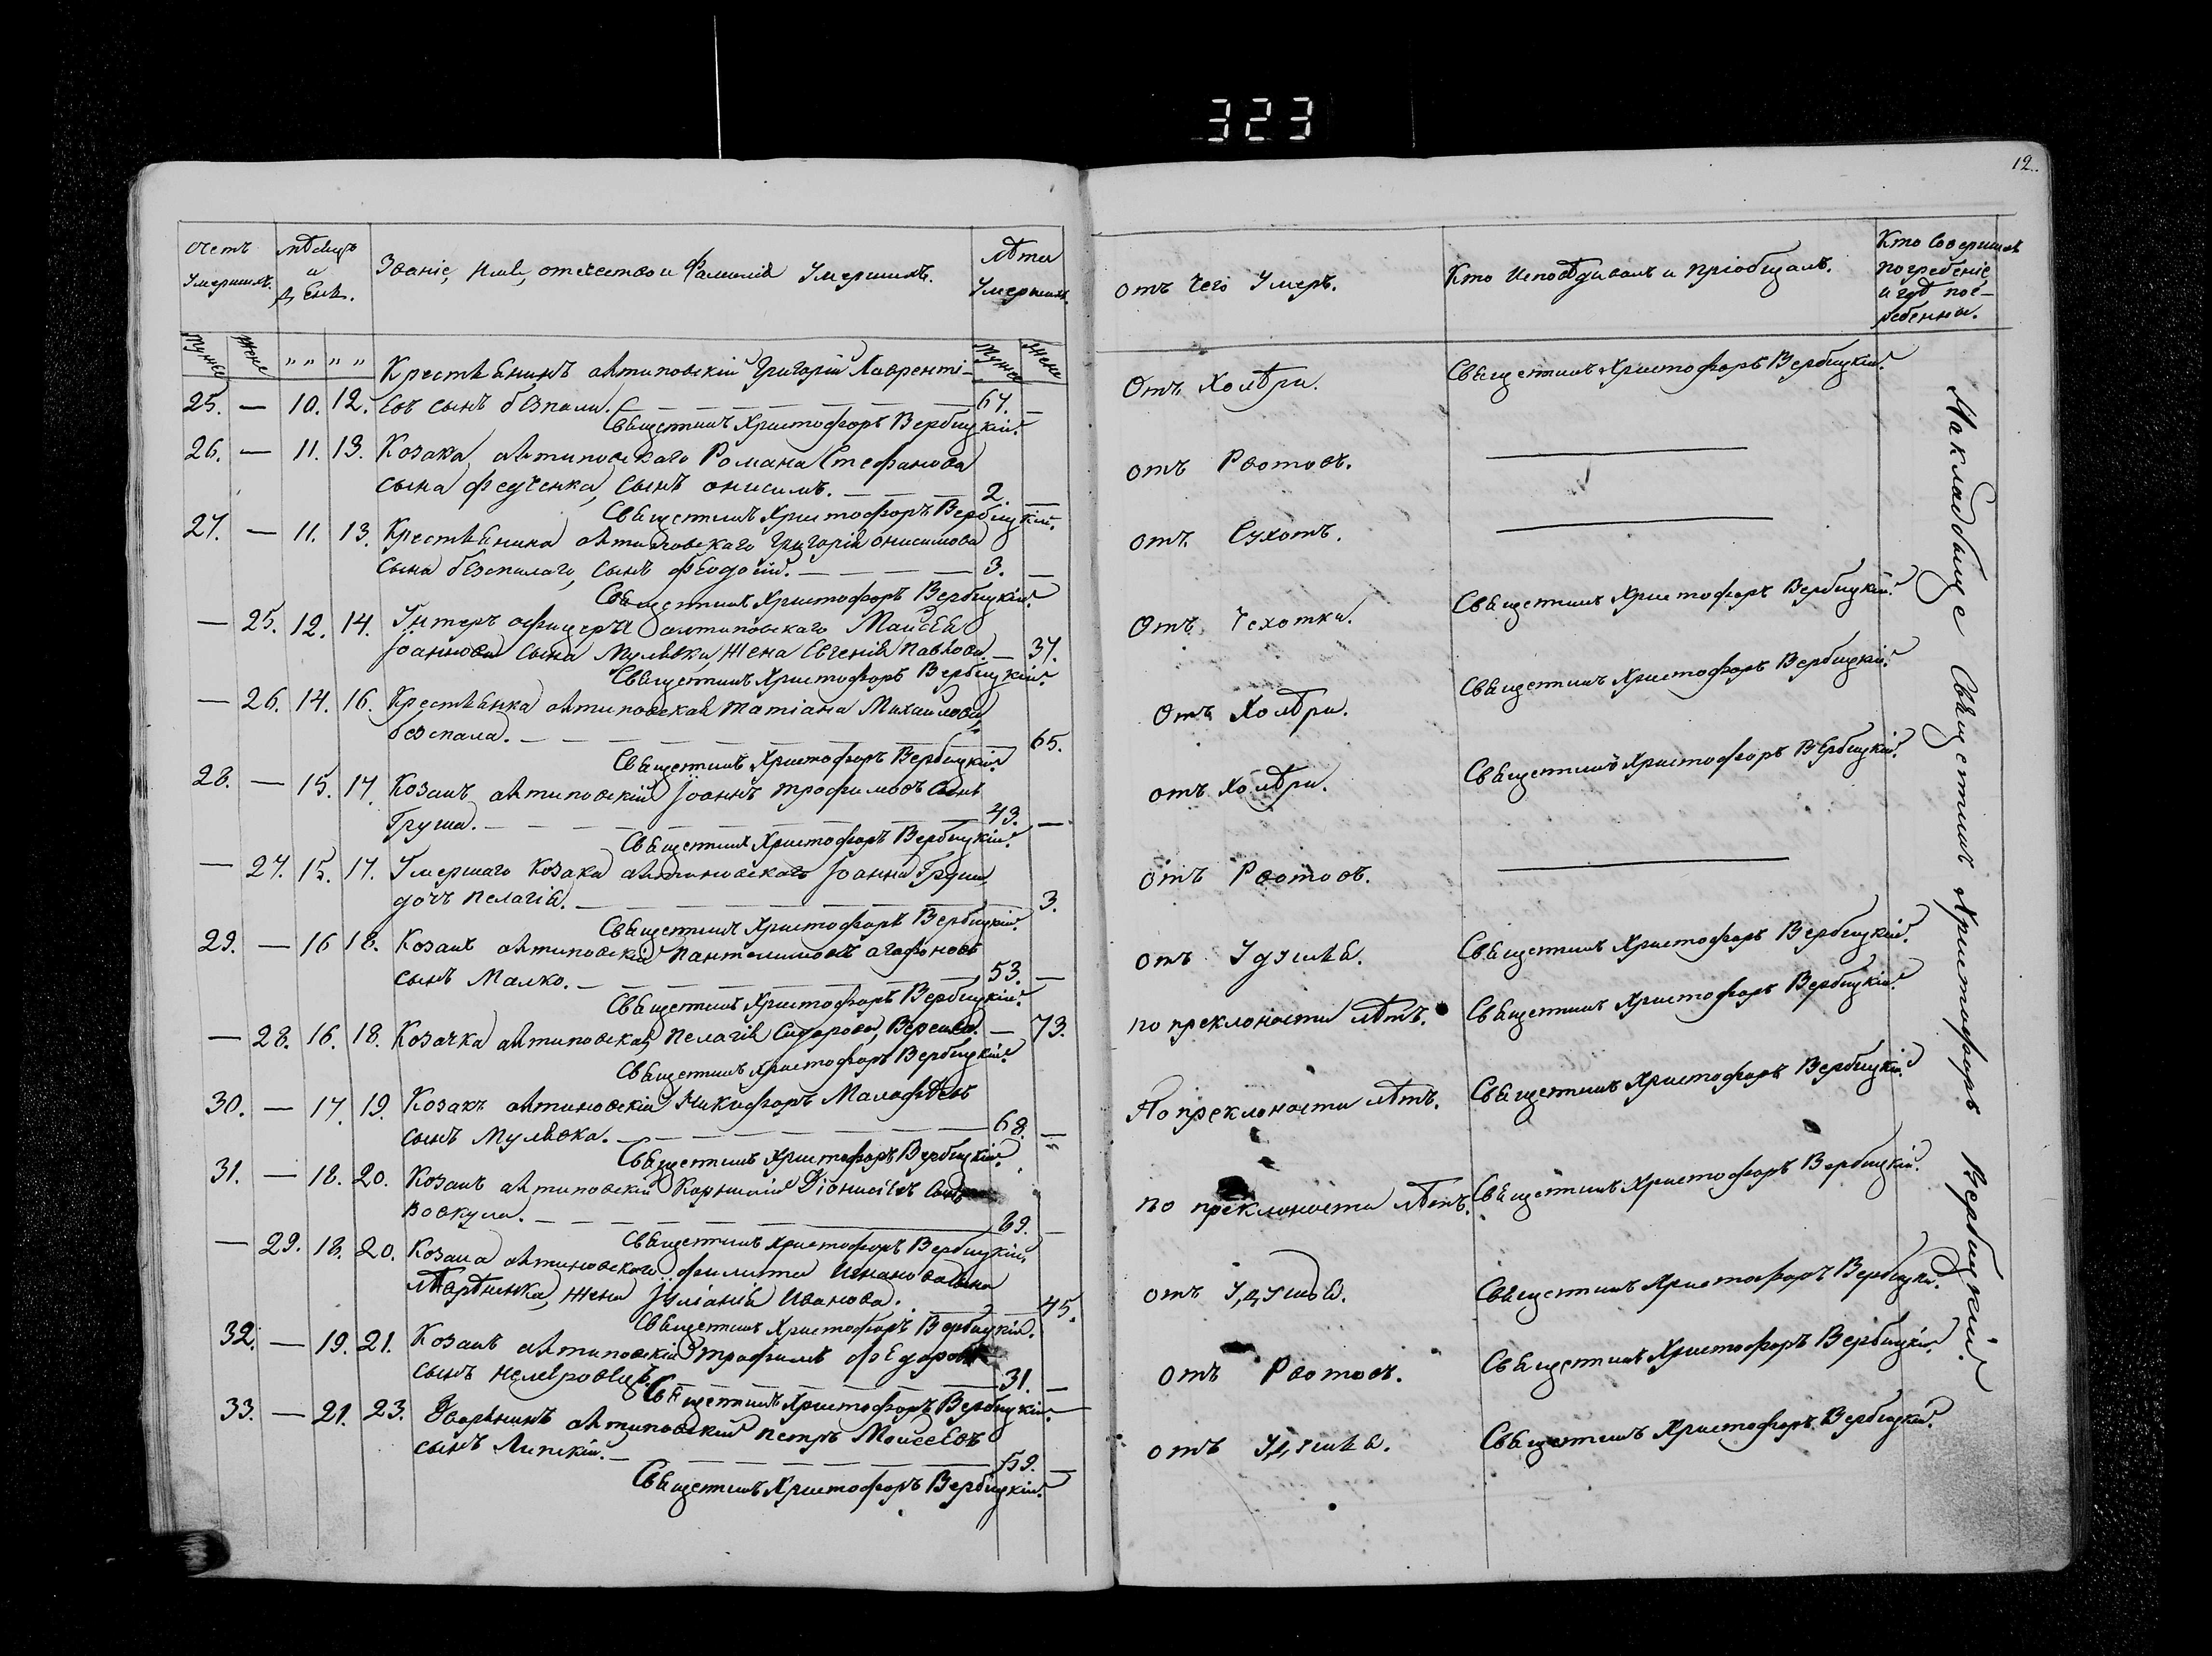 323
12.
Счетъ Умершихъ.
Мѣсяцъ и День.
Званіе, Имя, отечество и Фамилія Умершихъ.
Лѣта Умершихъ.
Мужес Жене
" " " "
Мужес Жене
Крестьянинъ Антиповскій Григорій Лавренті-
25. — 10. 12. евъ сынъ безпалы. — 67. —
Священникъ Христофоръ Вербицкій.
26. — 11. 13. Козака Антиповскаго Романа Стефанова
сына Федченка, сынъ Онисимъ. — 2. —
Священникъ Христофоръ Вербицкій.
27. — 11. 13. Крестьянина Антиповскаго Григорія Онисимова
сына безпалаго, сынъ Феодосій. — 3. —
Священникъ Христофоръ Вербицкій.
— 25. 12. 14. Унтеръ офицера Антиповскаго Моисея
Іоаннова сына Мулявки, жена Евгенія Павлова. — 37.
Священникъ Христофоръ Вербицкій.
— 26. 14. 16. Крестьянка Антиповская Татіана Михайлова
безпала. — 65.
Священникъ Христофоръ Вербицкій.
28. — 15. 17. Козакъ Антиповскій Іоаннъ Трофимовъ сынъ
Груша. — 43. —
Священникъ Христофоръ Вербицкій.
— 27. 15. 17. Умершаго Козака Антиповскаго Іоанна Груши
дочь Пелагія. — 3.
Священникъ Христофоръ Вербицкій.
29. — 16 18. Козакъ Антиповскій Пантелимонъ Агафоновъ
сынъ Малко. — 53. —
Священникъ Христофоръ Вербицкій.
— 28. 16. 18. Козачка Антиповская Пелагія Сидорова, — 73.
Священникъ Христофоръ Вербицкій.
30. — 17. 19. Козакъ Антиповскій Никифоръ Малофѣевъ
сынъ Мулявка. — 68. —
Священникъ Христофоръ Вербицкій.
31. — 18. 20. Козакъ Антиповскій Корнилій Діонисіевъ сынъ
Вовкула. — 69. —
Священникъ Христофоръ Вербицкій.
— 29. 18. 20. Козака Антиповскаго Филипа сына
жена Іуліанія Иванова. — 45.
Священникъ Христофоръ Вербицкій.
32. — 19. 21. Козакъ Антиповскій Трофимъ Федоровъ
сынъ — 31. —
Священникъ Христофоръ Вербицкій.
33. — 21. 23. Дворянинъ Антиповскій Петръ Моисеевъ
сынъ Липскій. — 59. —
Священникъ Христофоръ Вербицкій.
отъ чего Умеръ.
Кто Исповѣдывалъ и пріобщалъ.
Кто Совершилъ
погребеніе
и гдѣ пог-
ребенны.
Отъ Холѣри. Священникъ Христофоръ Вербицкій.
отъ Рвотовъ. —
отъ Сухотъ. —
Отъ Чехотки. Священникъ Христофоръ Вербицкій.
Отъ Холѣри. Священникъ Христофоръ Вербицкій.
отъ Холѣри. Священникъ Христофоръ Вербицкій.
отъ Рвотовъ. —
отъ Удушья. Священникъ Христофоръ Вербицкій.
по преклоности лѣтъ. Священникъ Христофоръ Вербицкій.
По преклоности лѣтъ. Священникъ Христофоръ Вербицкій.
по преклоности лѣтъ. Священникъ Христофоръ Вербицкій.
отъ Удушья. Священникъ Христофоръ Вербицкій.
отъ Рвотовъ. Священникъ Христофоръ Вербицкій.
отъ Удушья. Священникъ Христофоръ Вербицкій.
На кладбище Священникъ Христофоръ Вербицкій.